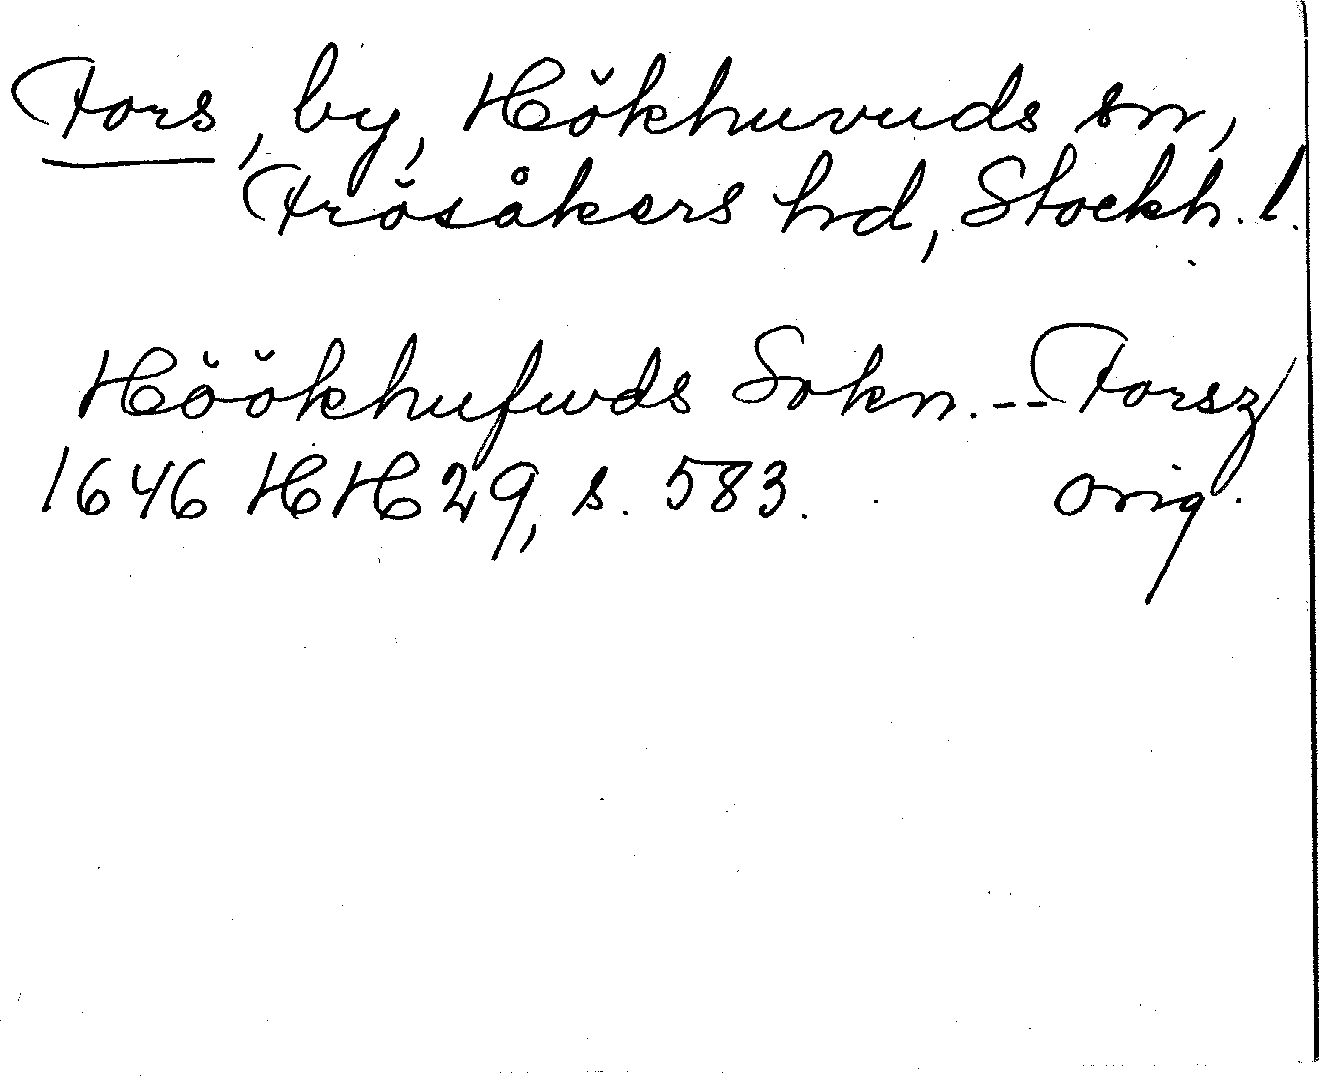 Fors, by, Hökhuvuds sn,
Frösåkers hd, Stockh. l.
Höökhufwds Sokn. -- Forsz
1646 HH 29, s. 583. orig.